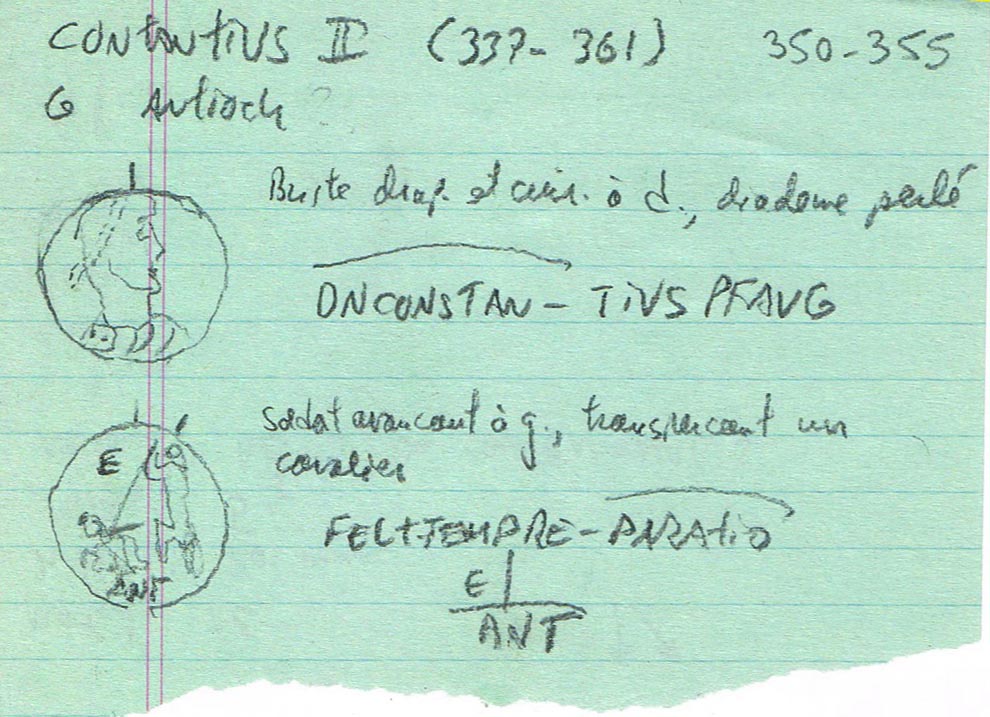 CONTANTIUS II (337-361) 350-355
G Antioch ?
Buste drap. et cuir. à d., diademe perlé
DNCONSTAN-TIVS PFAVG
E
ANT
Soldat avancant à g., transpercant un
cavalier
FELTTEMPRE-PARATIO
E
ANT